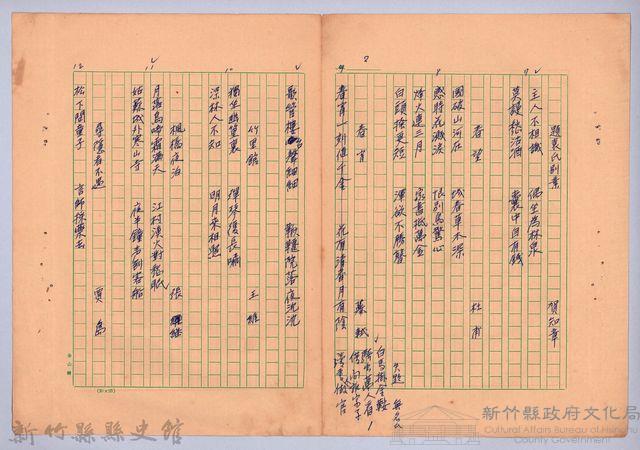 題袁氏別業 賀知章
主人不相識 偶坐為林泉
莫謾愁沽酒 囊中自有錢
春望 杜甫
國破山河在 城春草木深
感時花濺淚 恨別鳥驚心
烽火連三月 家書抵萬金
白頭搔更短 渾欲不勝簪
失題 無名氏
白馬掛金鞍
騎出萬人看
借問誰家子
讀書人做官
春宵 蘇軾
春宵一刻值千金 花有清香月有陰
歌管樓台聲細細 鞦韆院落夜沈沈
竹里館 王維
獨坐幽篁裏 彈琴復長嘯
深林人不知 明月來相照
楓橋夜泊 張繼
月落烏啼霜滿天 江村漁火對愁眠
姑蘇城外寒山寺 夜半鐘聲到客船
尋隱者不遇 賈島
松下問童子 言師採藥去
7
8
9
10
11
12
(25x12)
新竹縣縣史館
新竹縣政府文化局
Cultural Affairs Bureau of Hsinchu
County Government